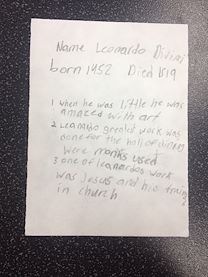 Name Leonardo Divinci
born 1452 Died 1519
1 when he was little he was
amazed with art
2 Leanardo geratist work was
done for the hall of dinning
were monks used
3 one of leanardos work
was Jesus and his
in church